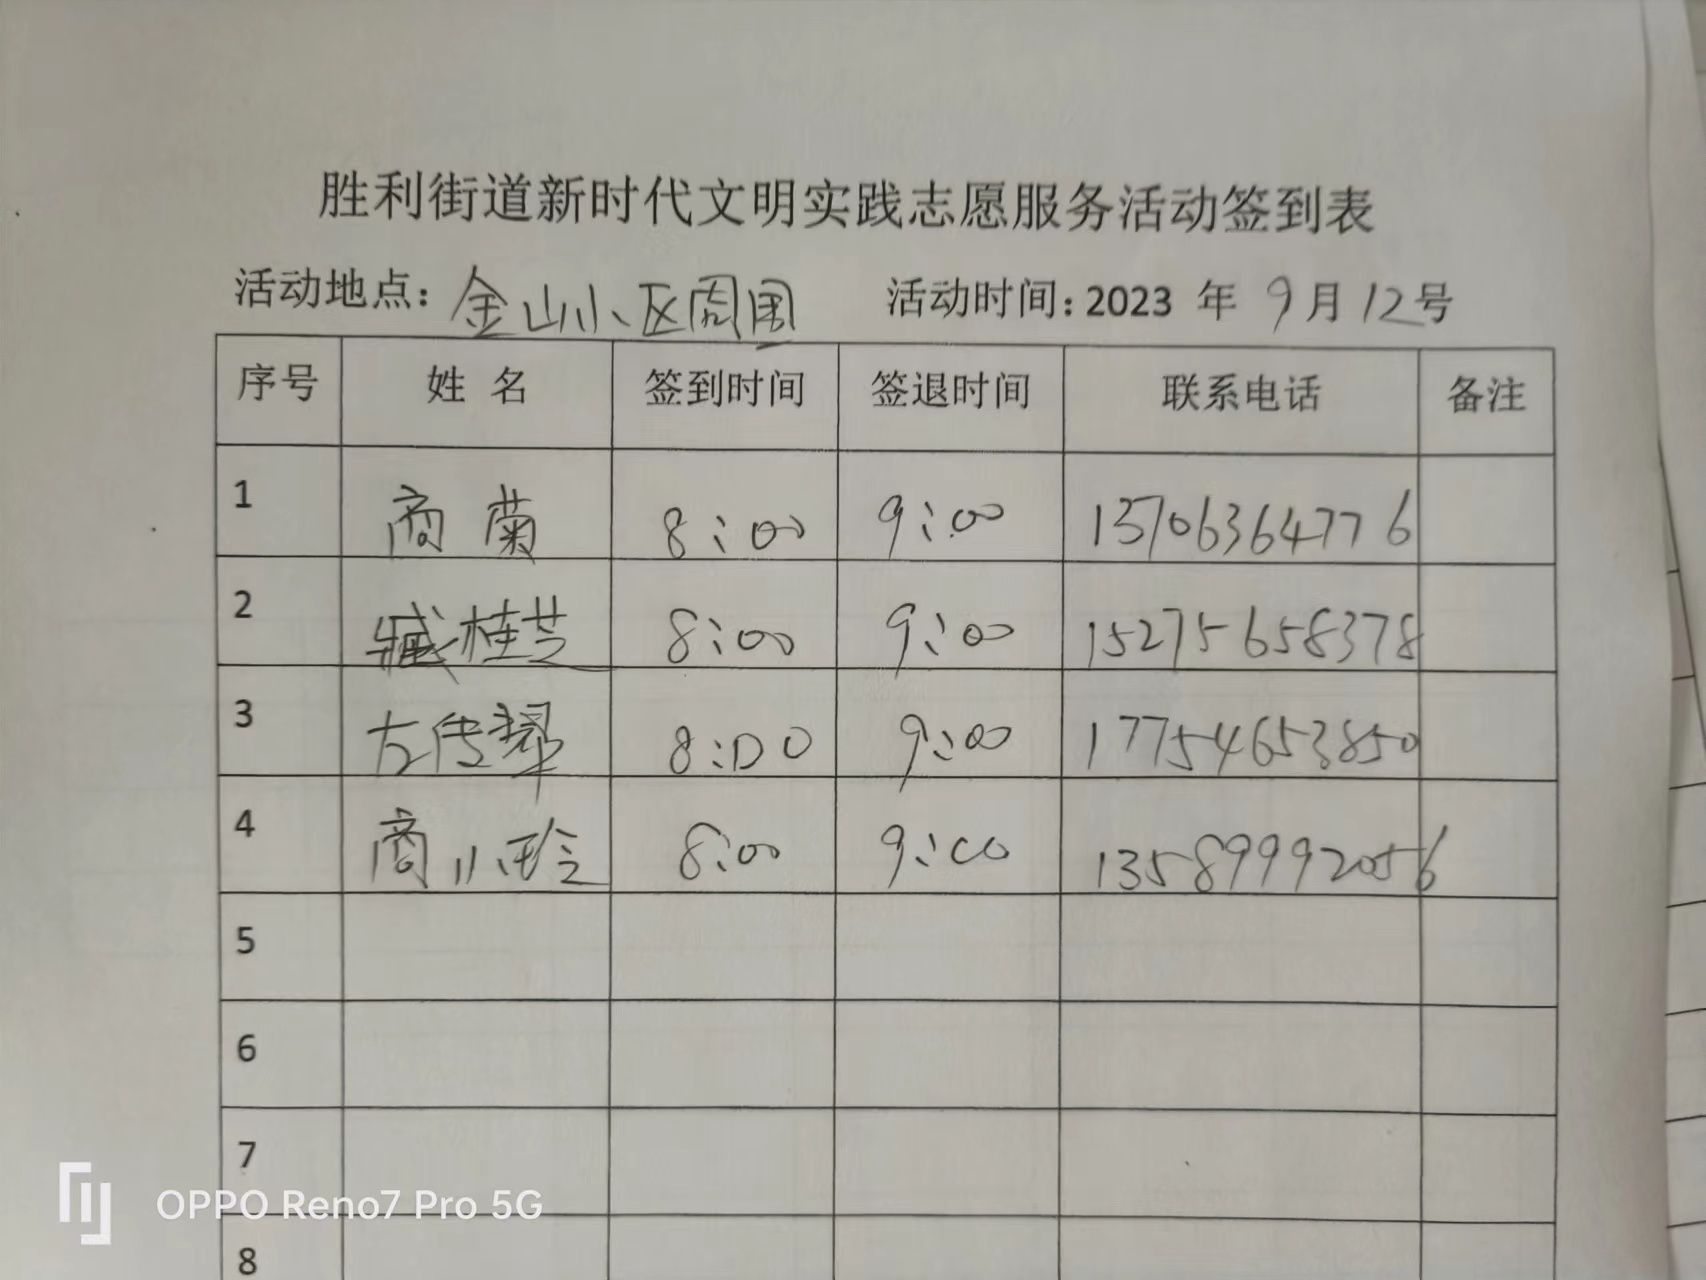 胜利街道新时代文明实践志愿服务活动签到表
活动地点：金山小区周围 活动时间：2023 年 9月12号
序号 姓 名 签到时间 签退时间 联系电话 备注
1 商菊 8:00 9:00 13706364776
2 臧桂芝 8:00 9:00 15275658378
3 左传翠 8:00 9:00 17754653850
4 商小玲 8:00 9:00 13589992056
5
6
7
8
OPPO Reno7 Pro 5G